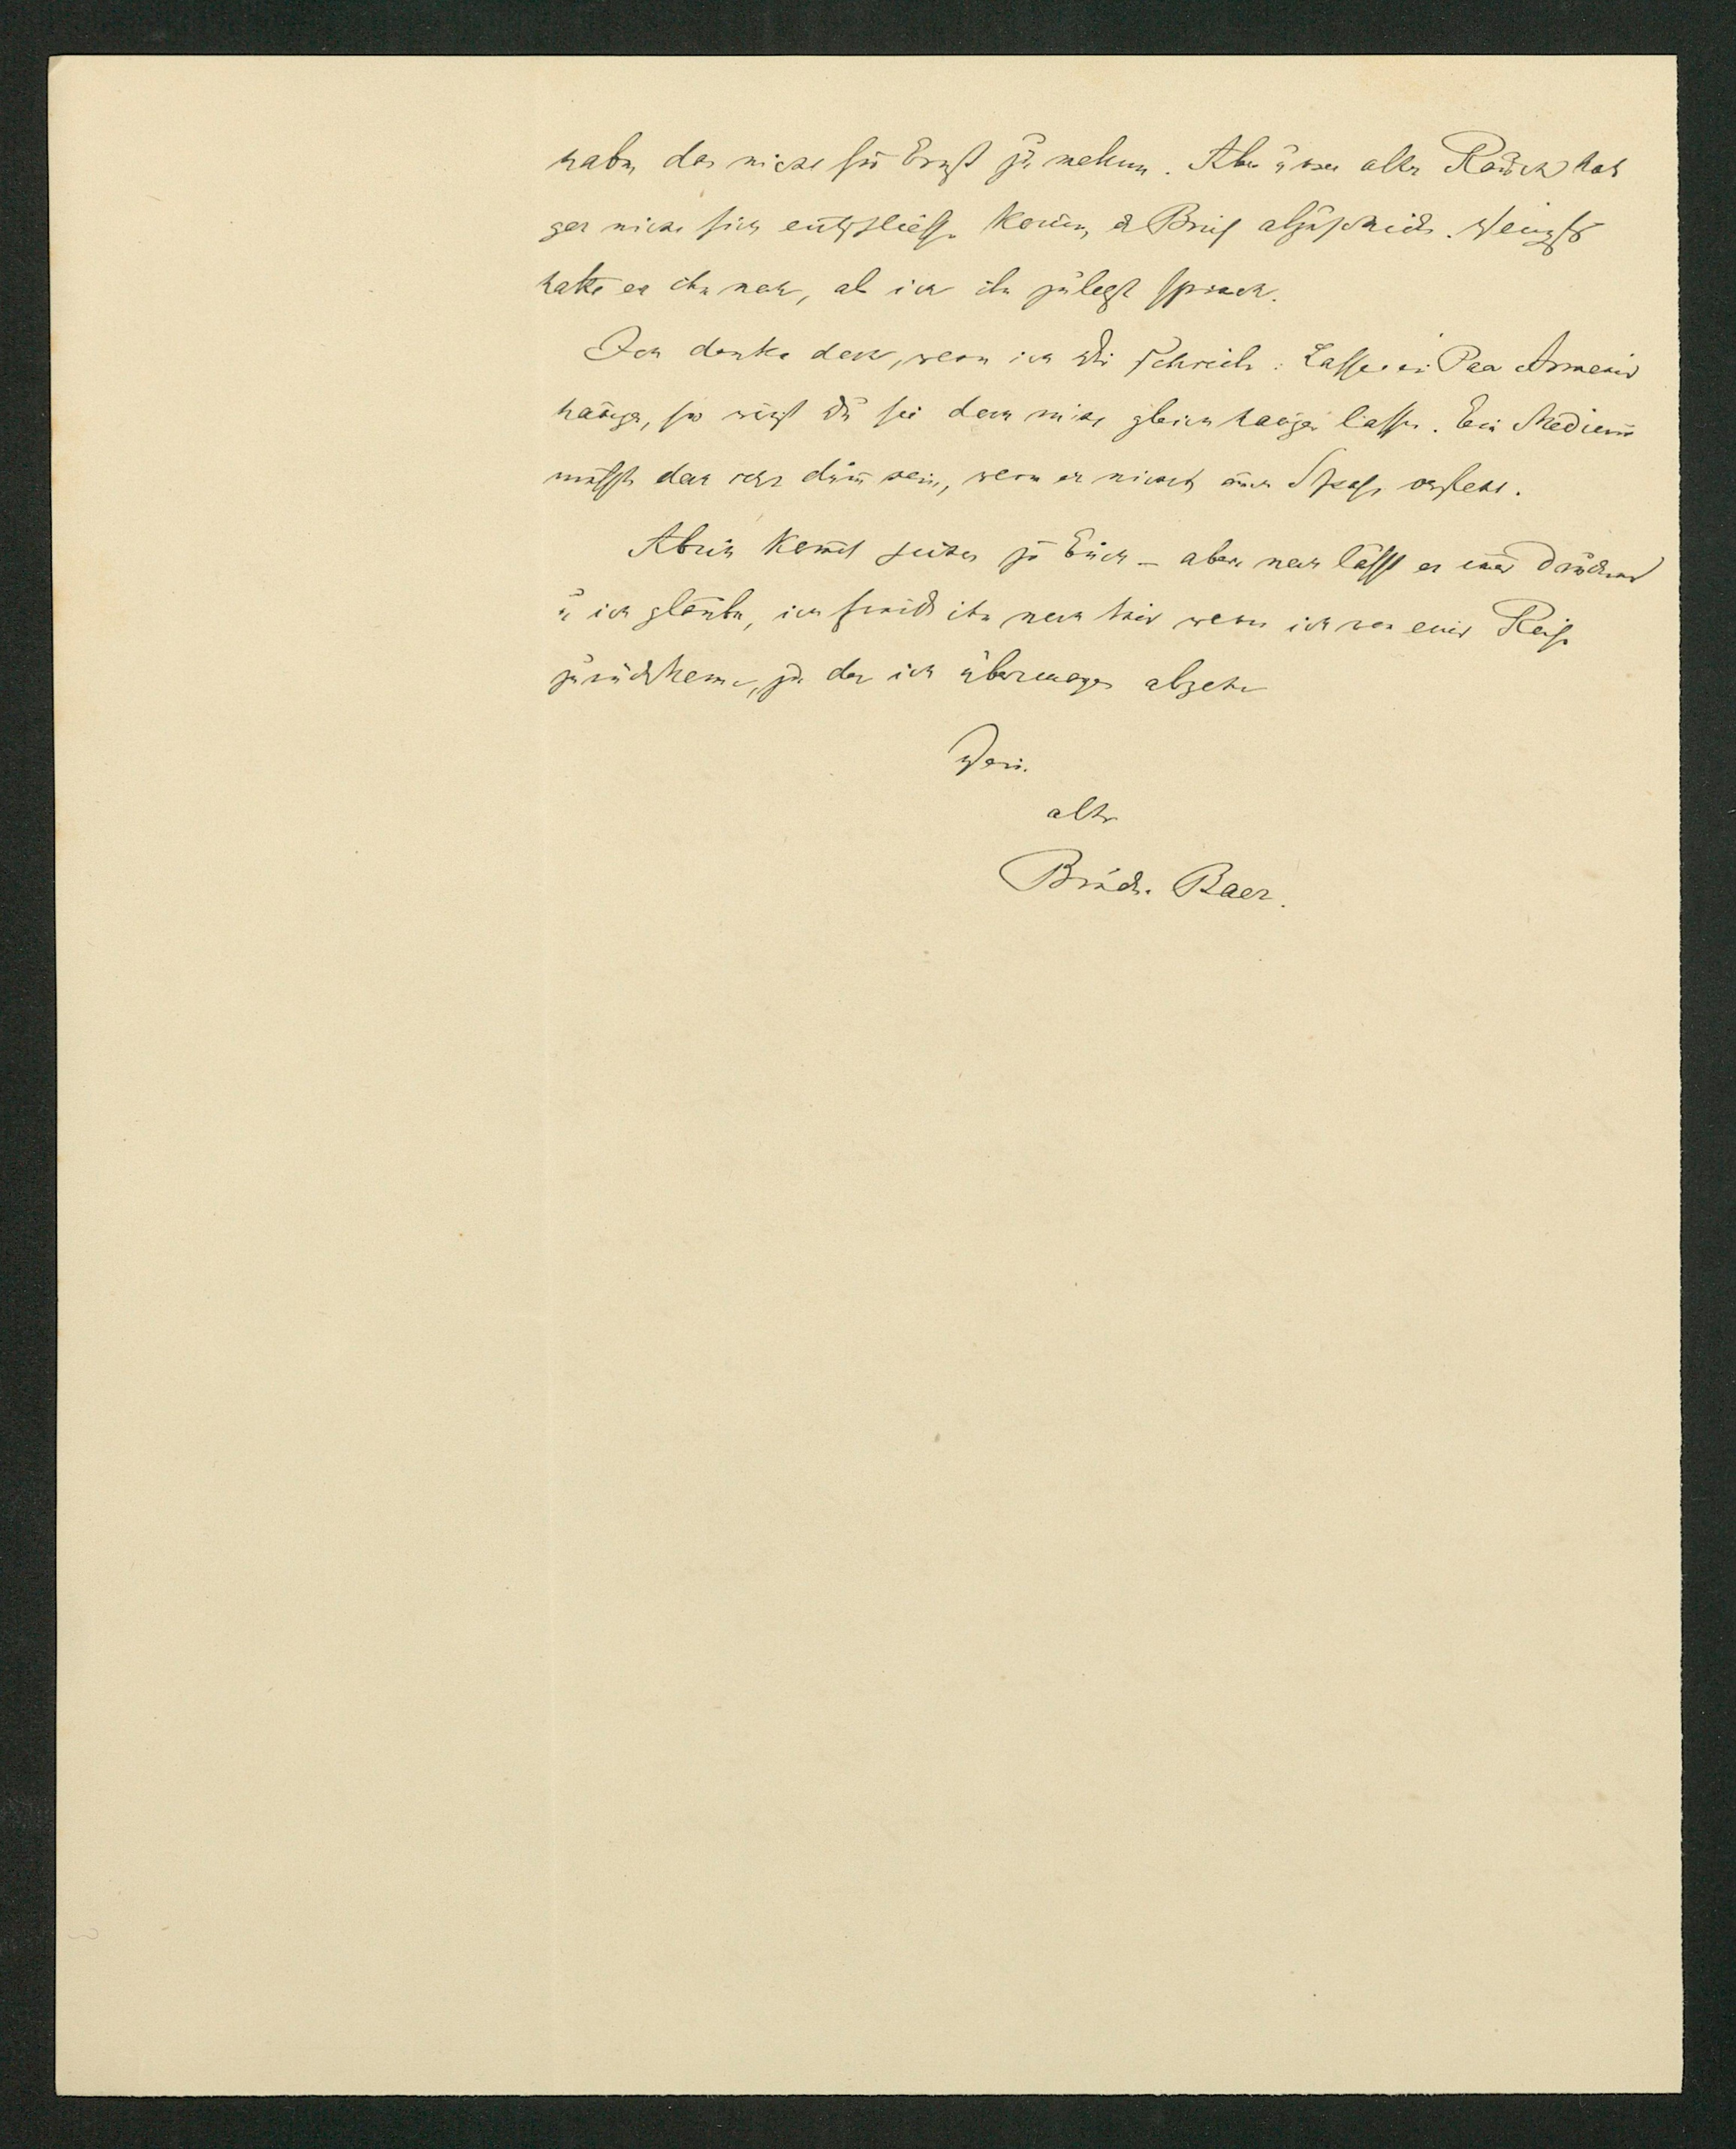 haben das nicht für Ernst zu nehmen. Aber unser alter Rausch hat
gar nicht sich entschliessen können, den Brief abzuschicken. Wenigst.
hatte er ihn noch, als ich ihn zuletzt sprach.
Ich denke doch, wenn ich Dir schreibe: Lasse ein Paar Armenier
hängen, so wirst Du sie doch nicht gleich hängen lassen. Ein
müsste doch sehr dumm sein, wenn er nicht Spass versteht.
Abich kommt zu Euch – aber noch lässt er immer drucken
u ich glaube, ich finde ihn noch hier wenn ich von einer Reise
zurückkomme, zu der ich übermorgen abgehe
Dein
alter
Bruder Baer.